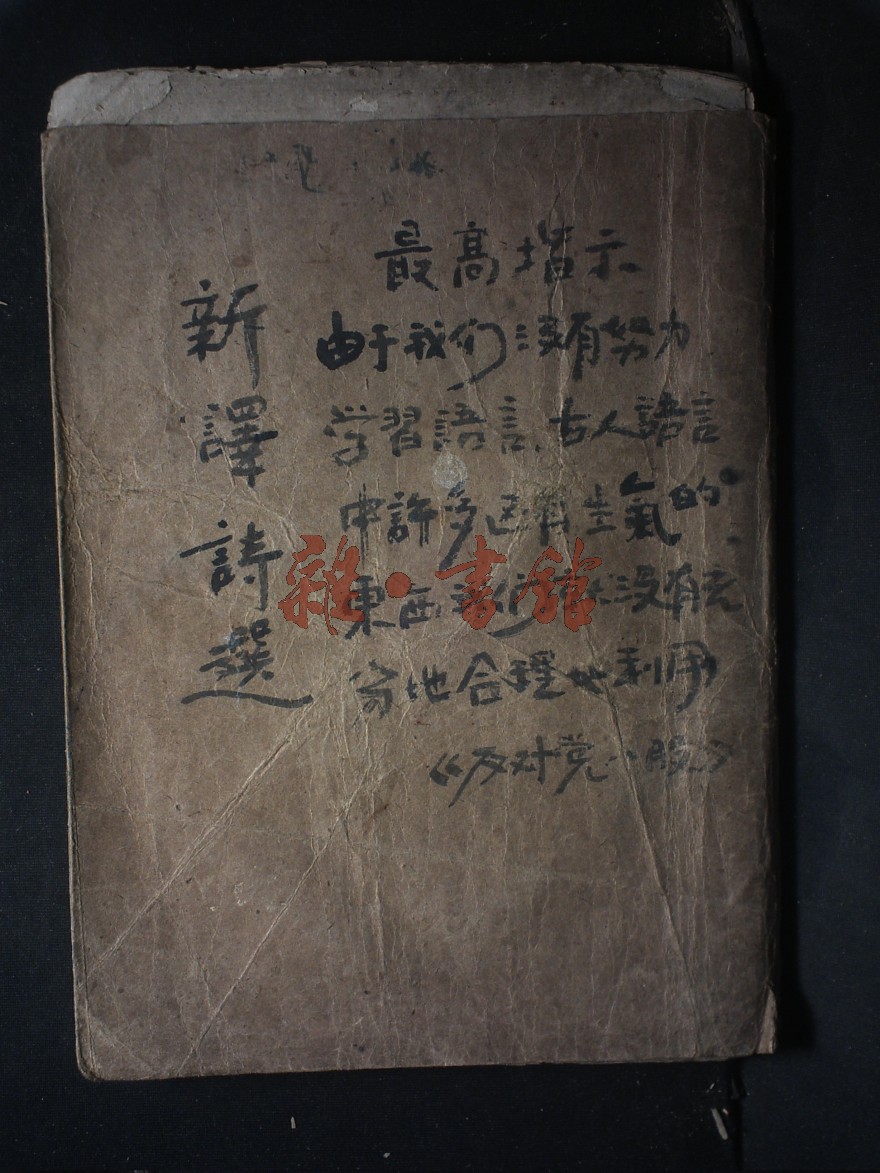 新譯詩選
最高指示
由于我们没有努力
学習語言、古人語言
中許多还有生氣的
東西我们就没有充
分地合理地利用
《反对党八股》
雜·書館